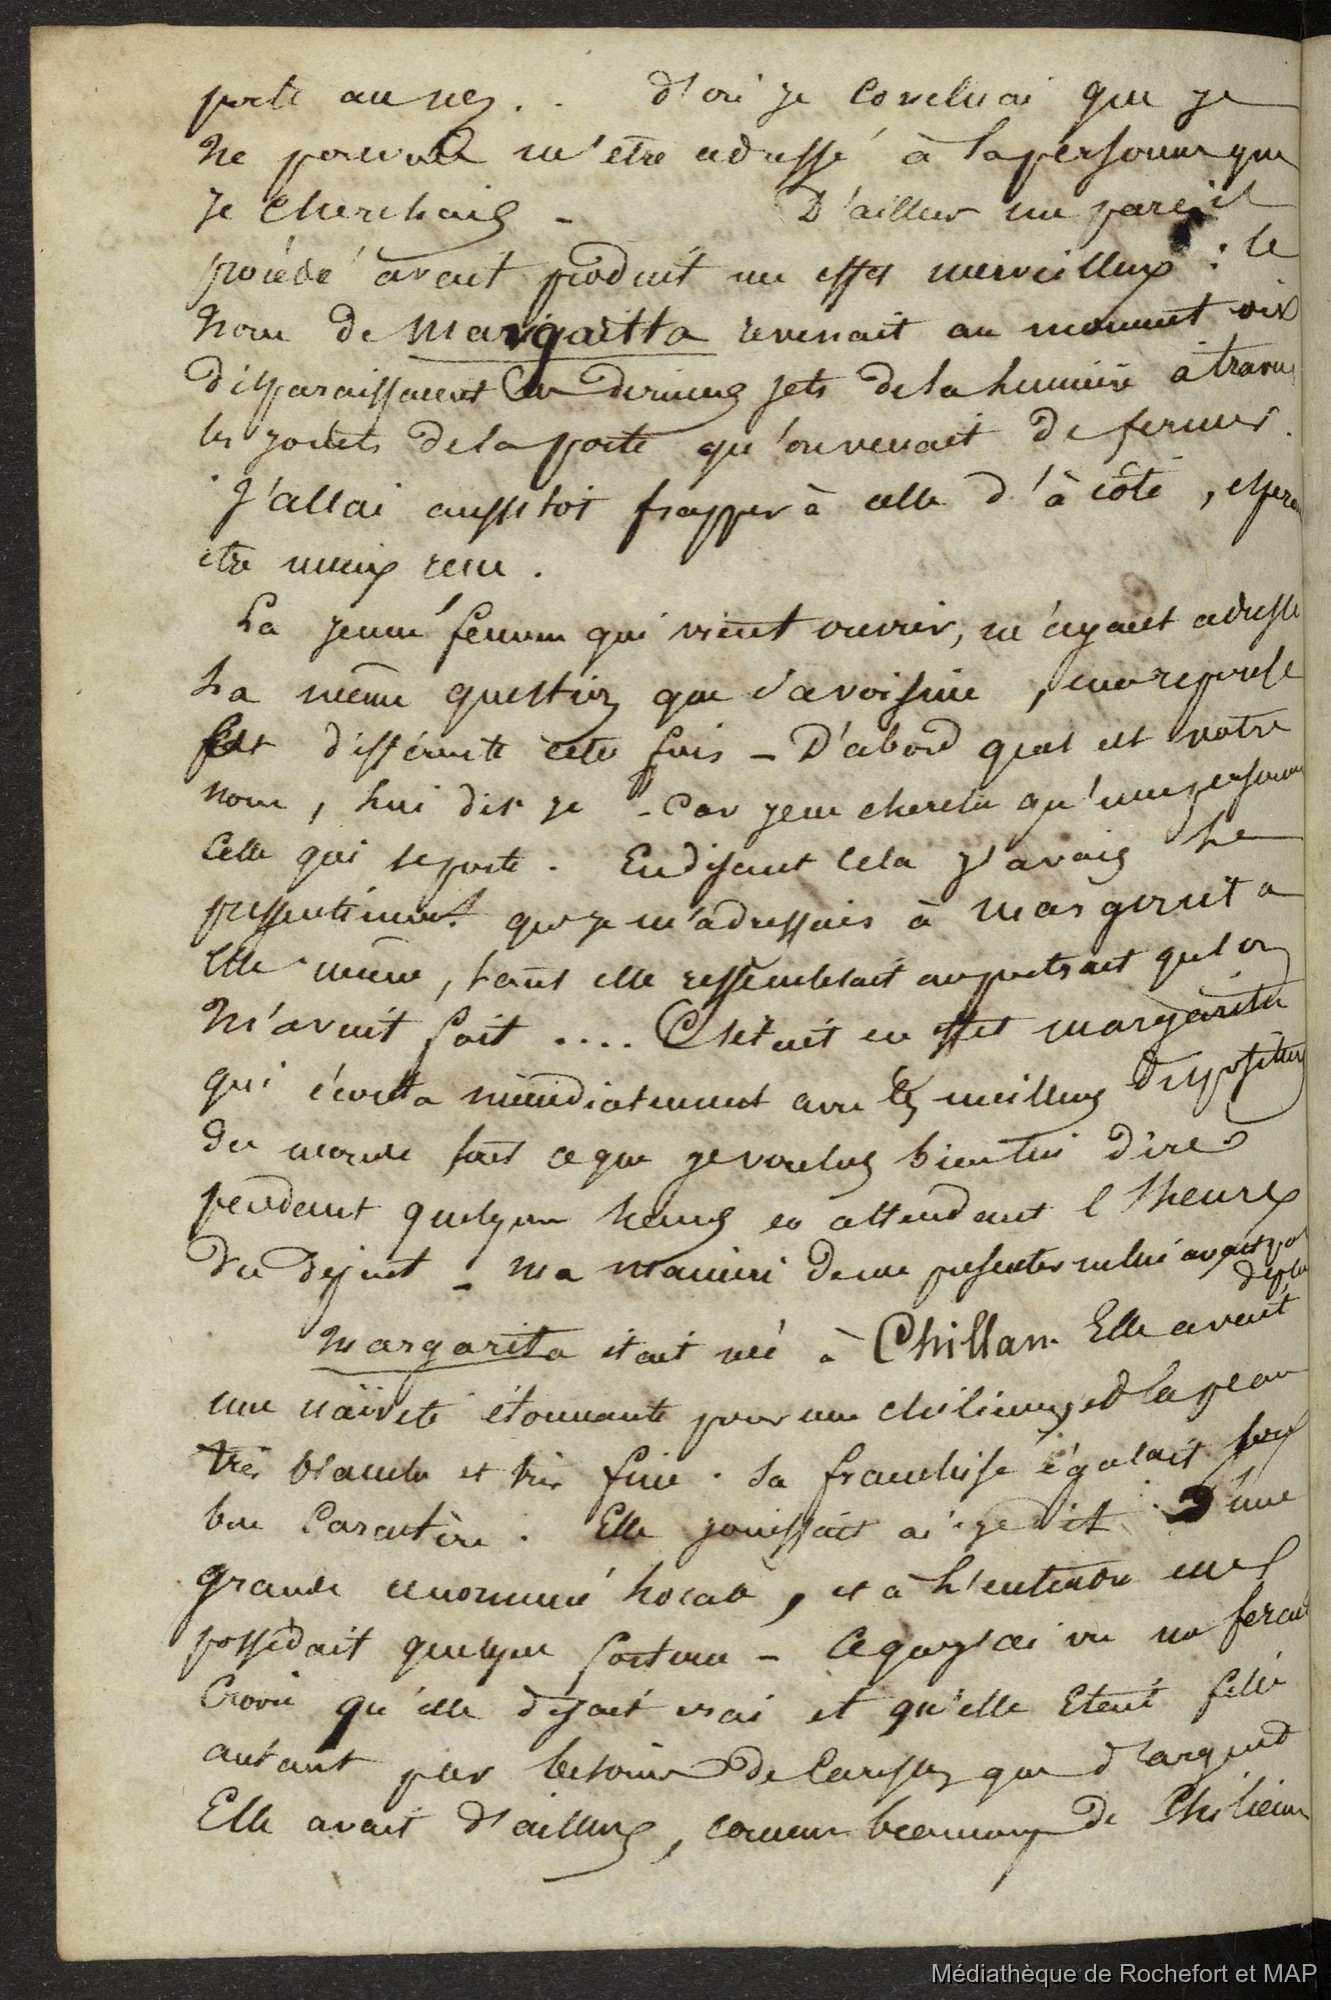 porte au nez . . d'où je concluai que je
ne pouvois m'etre adressé à la personne que
je cherchais _ D'ailleur un pareil
procédé avait produit un effet merveilleux : le
nom de Margaitta revenait au moment où
disparaissaient les derniers jets de la lumière à travers
les joints de la porte qu'on venait de fermer.
J'allai aussitot frapper à celle d'à côté , espera
etre mieux recu .
La jeune femme qui vient ouvrir, m'ayant adressé
La même question que sa voisine , ma reponse
fut différente cette fois _ D'abord quel est votre
nom , lui dis je _ car je ne cherche qu'une personne
celle qui le porte . En disant cela j'avais le
pressentiment que je m'adressais à Margerita
Elle même , tant elle ressemblait au portrait qu'on
M'avait fait .... C'était en effet margarita
qui écouta immédiatement avec les meilleurs dispositions
du monde tout ce que je voulus bien lui dire
pendant quelques heures en attendant l'heure
du dejeuné _ Ma manière de me présenter ne lui avait pas
déplu
Margarita était née à Chillan. Elle avait
une naïveté étonnante pour une chilienne, et la peau
très blanche et très fine . Sa franchise égalait son
bon Caractère . Elle jouissait ai-je dit d'une
grande renommée locale , et à l'entendre elle
possédait quelque fortune _ Ce que j'ai vu me ferait
Croire qu'elle disait vrai et qu'elle Etait fille
autant par besoin de Caresses que d'argent
Elle avait d'ailleurs, comme beaucoup de Chilienn
Médiathèque de Rochefort et MAP